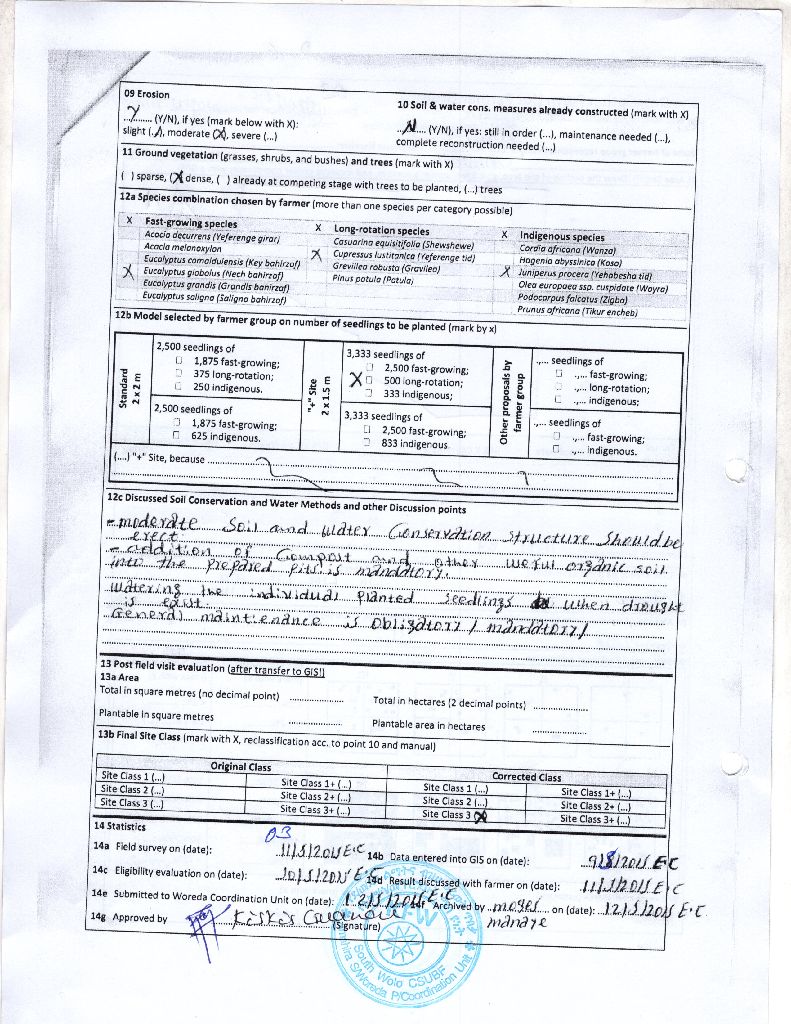 09 Erosion
Y (Y/N), if yes (mark below with X):
slight (...), moderate (X), severe (...)
10 Soil & water cons. measures already constructed (mark with X)
N (Y/N), if yes: still in order (...), maintenance needed (...),
complete reconstruction needed (...)
11 Ground vegetation (grasses, shrubs, and bushes) and trees (mark with X)
( ) sparse, (X) dense, ( ) already at competing stage with trees to be planted, (...) trees
12a Species combination chosen by farmer (more than one species per category possible)
X Fast-growing species
Acacia decurrens (Yeferenge girar)
Acacia melanoxylon
Eucalyptus camaldulensis (Key bahirzaf)
X Eucalyptus globolus (Nech bahirzaf)
Eucalyptus grandis (Grandis banirzaf)
Eucalyptus saligna (Saligna bahirzaf)
X Long-rotation species
Casuarina equisitifolia (Shewshewe)
X Cupressus lustitanica (Yeferenge tid)
Grevillea robusta (Gravilea)
Pinus patula (Patula)
X Indigenous species
Cordia africana (Wanza)
Hagenia abyssinica (Koso)
X Juniperus procera (Yehabesha tid)
Olea europaea ssp. cuspidate (Woyra)
Podocarpus falcatus (Zigba)
Prunus africana (Tikur encheb)
12b Model selected by farmer group on number of seedlings to be planted (mark by x)
Standard
2 x 2 m
2,500 seedlings of
☐ 1,875 fast-growing;
☐ 375 long-rotation;
☐ 250 indigenous.
2,500 seedlings of
☐ 1,875 fast-growing;
☐ 625 indigenous.
"+" Site
2 x 1.5 m
3,333 seedlings of
☐ 2,500 fast-growing;
X ☐ 500 long-rotation;
☐ 333 indigenous;
3,333 seedlings of
☐ 2,500 fast-growing;
☐ 833 indigenous.
Other proposals by
farmer group
.,... seedlings of
☐ .,... fast-growing;
☐ .,... long-rotation;
☐ .,... indigenous;
.,... seedlings of
☐ .,... fast-growing;
☐ .,... indigenous.
(....) "+" Site, because
12c Discussed Soil Conservation and Water Methods and other Discussion points
- moderate Soil and water Conservation Structure Should be
erect
- addition of Compost and other useful organic soil
into the prepared pits is mandatory.
Watering the individual planted seedlings when drought
is exist
General maintienance is obligatory / mandatory/
13 Post field visit evaluation (after transfer to GIS!)
13a Area
Total in square metres (no decimal point) ............... Total in hectares (2 decimal points) ...............
Plantable in square metres ............... Plantable area in hectares ...............
13b Final Site Class (mark with X, reclassification acc. to point 10 and manual)
Original Class Corrected Class
Site Class 1 (...) Site Class 1+ (...) Site Class 1 (...) Site Class 1+ (...)
Site Class 2 (...) Site Class 2+ (...) Site Class 2 (...) Site Class 2+ (...)
Site Class 3 (...) Site Class 3+ (...) Site Class 3 (X) Site Class 3+ (...)
14 Statistics
03
14a Field survey on (date): 11/5/2015 E.C 14b Data entered into GIS on (date): 9/8/2015 E.C
14c Eligibility evaluation on (date): 10/5/2015 E.C 14d Result discussed with farmer on (date): 11/5/2015 E.C
14e Submitted to Woreda Coordination Unit on (date): 12/5/2015 E.C 14f Archived by moges manaye on (date): 12/5/2015 E.C
14g Approved by
(Signature)
South Wolo CSUBF
S/Woreda P/Coordination Unit